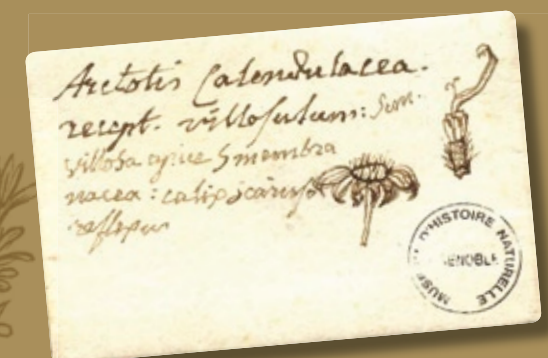 Arctotis Calendulacea.
recept. villosulum: Sem.
villosa apice 5 membra
nacea: calix
reflexus
MUSEUM D'HISTOIRE NATURELLE
GRENOBLE